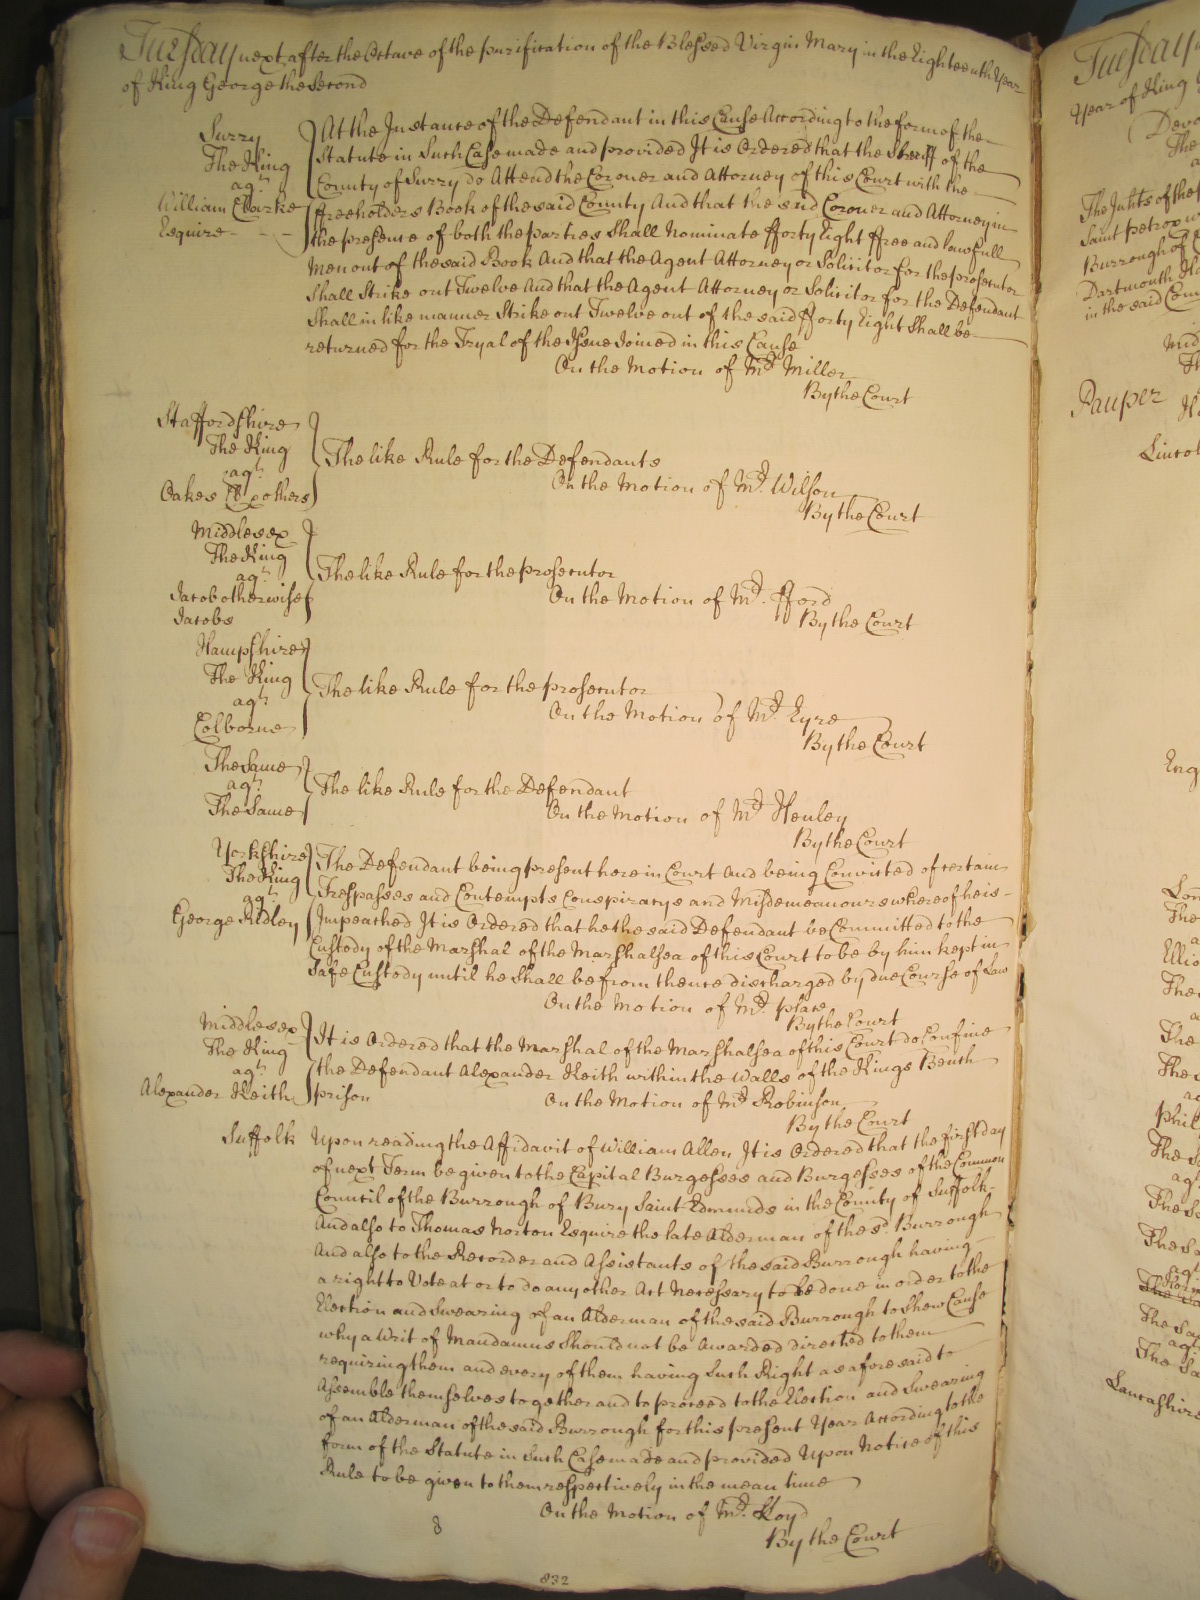 Tuesday next after the Octave of the purification of the Blessed Virgin Mary in the Eighteenth Year
of King George the Second
Surry
The King
agt
William Clarke
Esquire
At the Instance of the Defendant in this Cause According to the form of the
Statute in Such Case made and provided It is Ordered that the Sheriff of the
County of Surry do Attend the Coroner and Attorney of this Court with the
ffreeholders Book of the said County And that the said Coroner and Attorney in
the presence of both the parties Shall Nominate fforty Eight ffree and lawfull
Men out of the said Book And that the Agent Attorney or Solicitor for the prosecutor
Shall Strike out Twelve And that the Agent Attorney or Solicitor for the Defendant
Shall in like manner Strike out Twelve out of the said fforty Eight Shall be
returned for the Tryal of the Issue Joined in this Cause
On the Motion of Mr Miller
By the Court
Staffordshire
The King
agt
Oakes & others
The like Rule for the Defendants
On the Motion of Mr. Wilson
By the Court
Middlesex
The King
agt
Jacob otherwise
Jacobs
The like Rule for the prosecutor
On the Motion of Mr. fford
By the Court
Hampshire
The King
agt
Colborne
The like Rule for the prosecutor
On the Motion of Mr Eyre
By the Court
The Same
agt
The Same
The like Rule for the Defendant
On the Motion of Mr Henley
By the Court
Yorkshire
The King
agt
George Ridley
The Defendant being present here in Court And being Convicted of certain
Trespasses and Contempts Conspiracys and Misdemeanours whereof he is
Impeached It is Ordered that he the said Defendant be Committed to the
Custody of the Marshal of the Marshalsea of this Court to be by him kept in
Safe Custody until he Shall be from thence discharged by due Course of Law
On the Motion of Mr place
By the Court
Middlesex
The King
agt
Alexander Keith
It is Ordered that the Marshal of the Marshalsea of this Court do Confine
the Defendant Alexander Keith within the Walls of the Kings Bench
prison
On the Motion of Mr Robinson
By the Court
Suffolk
Upon reading the Affidavit of William Allen It is Ordered that the first day
of next Term be given to the Capital Burgesses and Burgesses of the Common
Council of the Burrough of Bury Saint Edmunds in the County of Suffolk
And also to Thomas Norton Esquire the late Alderman of the sd. Burrough
And also to the Recorder and Assistants of the said Burrough having
a right to Vote at or to do any other Act Necessary to be done in order to the
Election and Swearing of an Alderman of the said Burrough to Shew Cause
why a Writ of Mandamus Should not be Awarded directed to them
requiring them and every of them having Such Right as aforesaid to
Assemble themselves together and to proceed to the Election and Swearing
of an Alderman of the said Burrough for this present Year According to the
form of the Statute in Such Case made and provided Upon Notice of this
Rule to be given to them respectively in the mean time
On the Motion of Mr. Lloyd
By the Court
8
832
Tuesday
Year of King
Devo
The
The Inhts of the
Saint petrox
Burrough of
Dartmouth
in the said
Mid
Th
Pauper
Lincol
Eng
Lon
The
Ellio
The
The
The
Phil
The S
agt
The Sa
The Sa
agt
The Sa
agt
The Sa
Lancashire